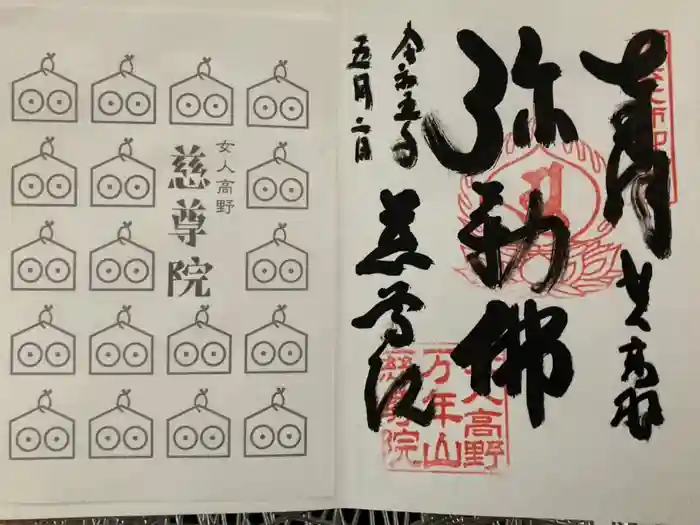 女人高野
慈尊院
奉拝
女人高野
弥勒佛
令和五年
五月二日
慈尊院
女人高野
万年山
慈尊院